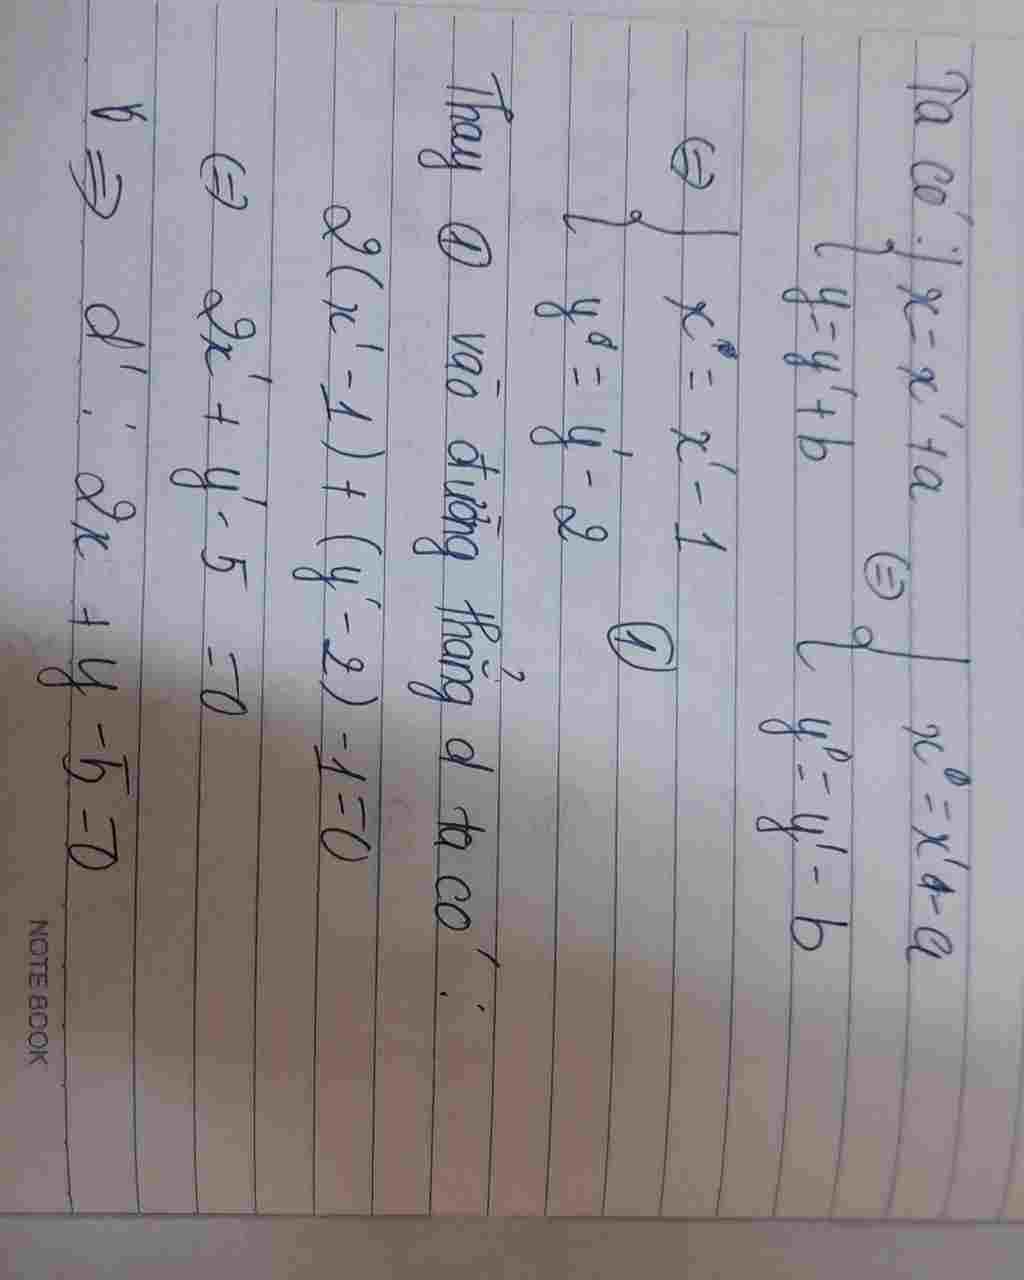 Ta có: { x = x' + a ⇔ { x = x' - a
{ y = y' + b { y = y' - b
⇔ { x = x' - 1
{ y = y' - 2 ①
Thay ① vào đường thẳng d ta có:
2(x' - 1) + (y' - 2) - 1 = 0
⇔ 2x' + y' - 5 = 0
⇒ d': 2x + y - 5 = 0
NOTEBOOK